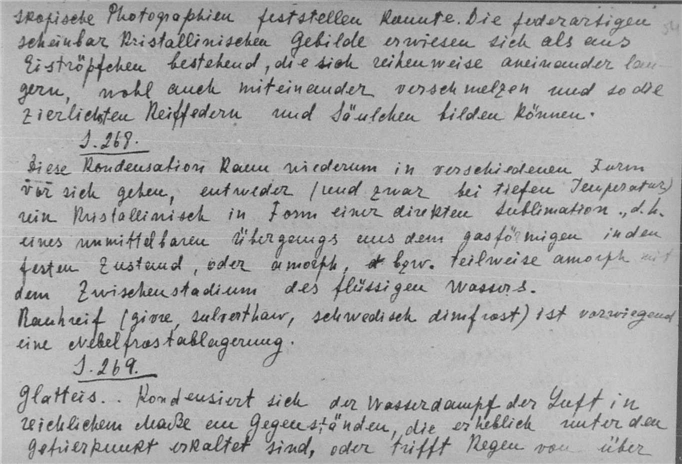 skopische Photographien feststellen konnte. Die federartigen
scheinbar kristallinischen Gebilde erwiesen sich als aus
Eiströpfchen bestehend, die sich reihenweise aneinander lan-
gern, wohl auch miteinander verschmelzen und so die
zierlichsten Reiffedern und Säulchen bilden können.
S. 268.
Diese Kondensation kann wiederum in verschiedenen Form
vor sich gehen, entweder (und zwar bei tiefen Temperatur)
rein kristallinisch in Form einer direkten Sublimation „d.h.
eines unmittelbaren Übergangs aus dem gasförmigen in den
festen Zustand, oder amorph, bzw. teilweise amorph mit
dem Zwischenstadium des flüssigen Wassers.
Rauhreif (givre, silverthaw, schwedisch dimfrost) ist vorwiegend
eine Nebelfrostablagerung.
S. 269.
Glatteis.. Kondensiert sich der Wasserdampf der Luft in
reichlichem Maße an Gegenständen, die erheblich unter den
Gefrierpunkt erkaltet sind, oder trifft Regen von über